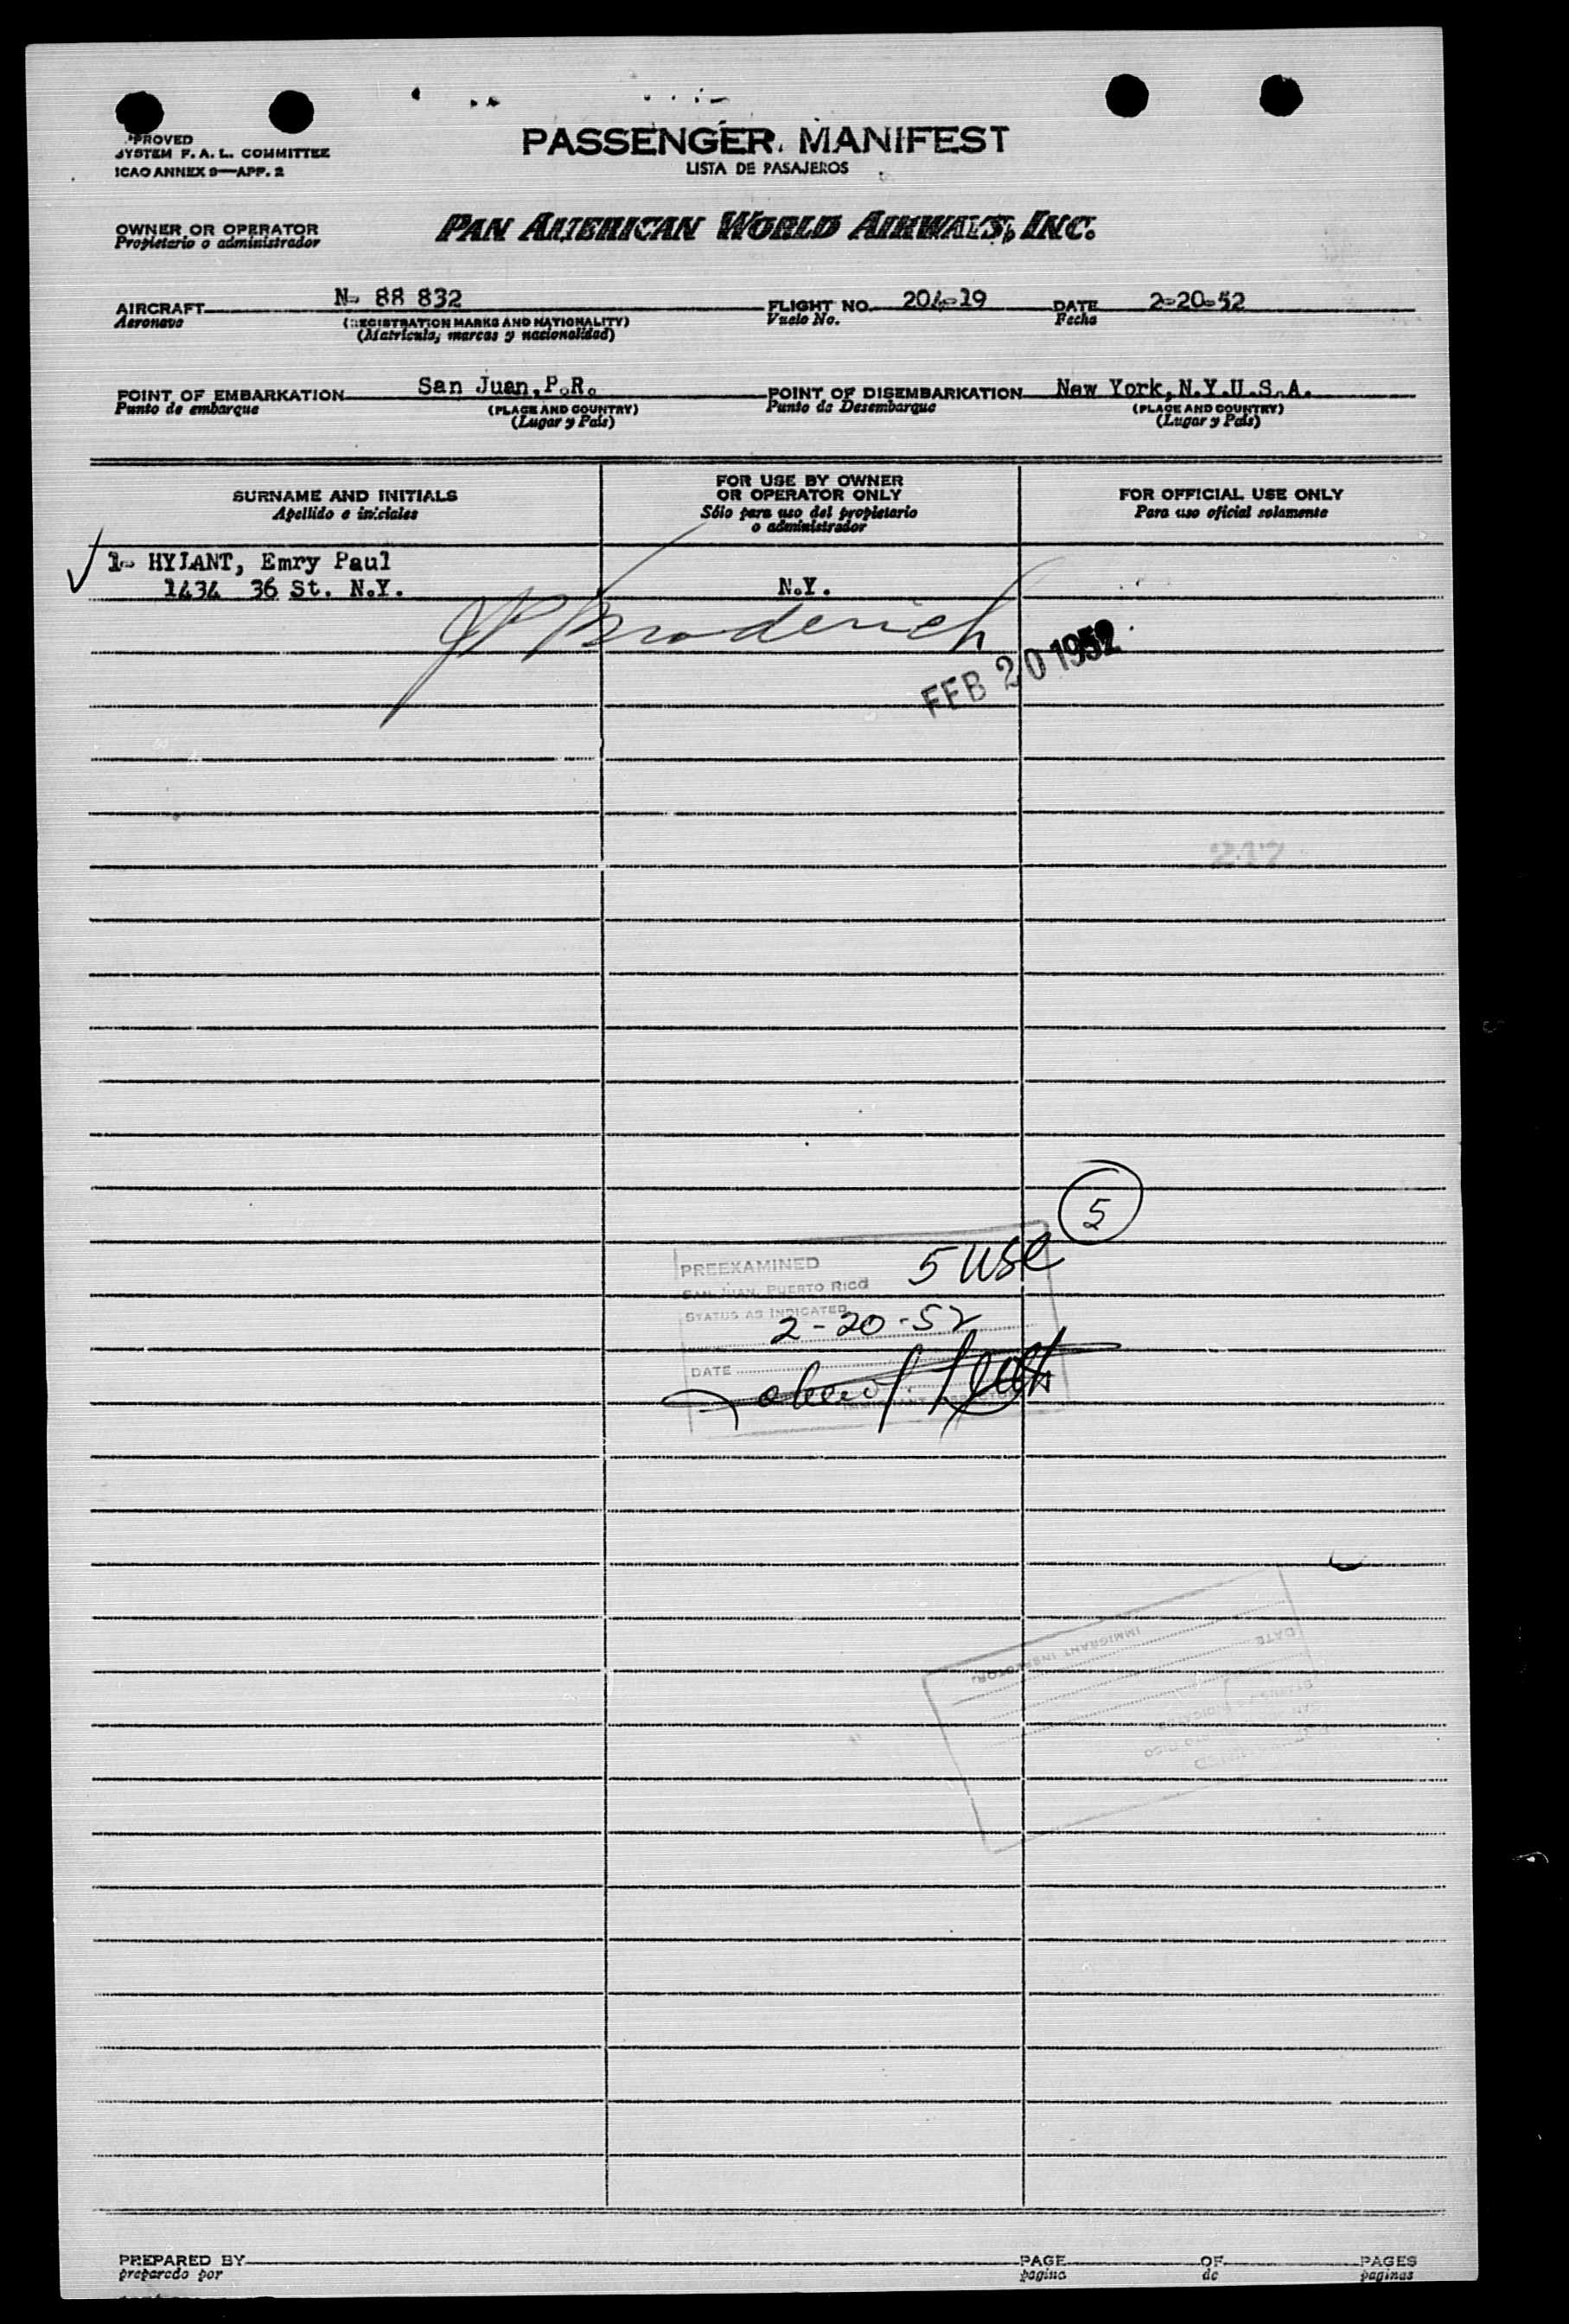 PROVED
SYSTEM F. A. L. COMMITTEE
ICAO ANNEX 9—APP. 2
PASSENGER MANIFEST
LISTA DE PASAJEROS
OWNER OR OPERATOR
Propietario o administrador
PAN AMERICAN WORLD AIRWAYS, INC.
AIRCRAFT N- 88 832 FLIGHT NO. 204-19 DATE 2-20-52
Aeronave (REGISTRATION MARKS AND NATIONALITY) Vuelo No. Fecha
(Matrícula, marcas y nacionalidad)
POINT OF EMBARKATION San Juan, P.R. POINT OF DISEMBARKATION New York, N.Y.U.S.A.
Punto de embarque (PLACE AND COUNTRY) Punto de Desembarque (PLACE AND COUNTRY)
(Lugar y País) (Lugar y País)
SURNAME AND INITIALS
Apellido e iniciales
FOR USE BY OWNER
OR OPERATOR ONLY
Sólo para uso del propietario
o administrador
FOR OFFICIAL USE ONLY
Para uso oficial solamente
1- HYLANT, Emry Paul
1434 36 St. N.Y. N.Y.
JP Broderick
FEB 20 1952
217
5
5 USC
PREEXAMINED
SAN JUAN, PUERTO RICO
STATUS AS INDICATED
2-20-52
DATE
IMMIGRANT INSPECTOR
IMMIGRANT INSPECTOR
DATE
STATUS AS INDICATED
SAN JUAN, PUERTO RICO
PREEXAMINED
PREPARED BY PAGE OF PAGES
preparado por página de páginas